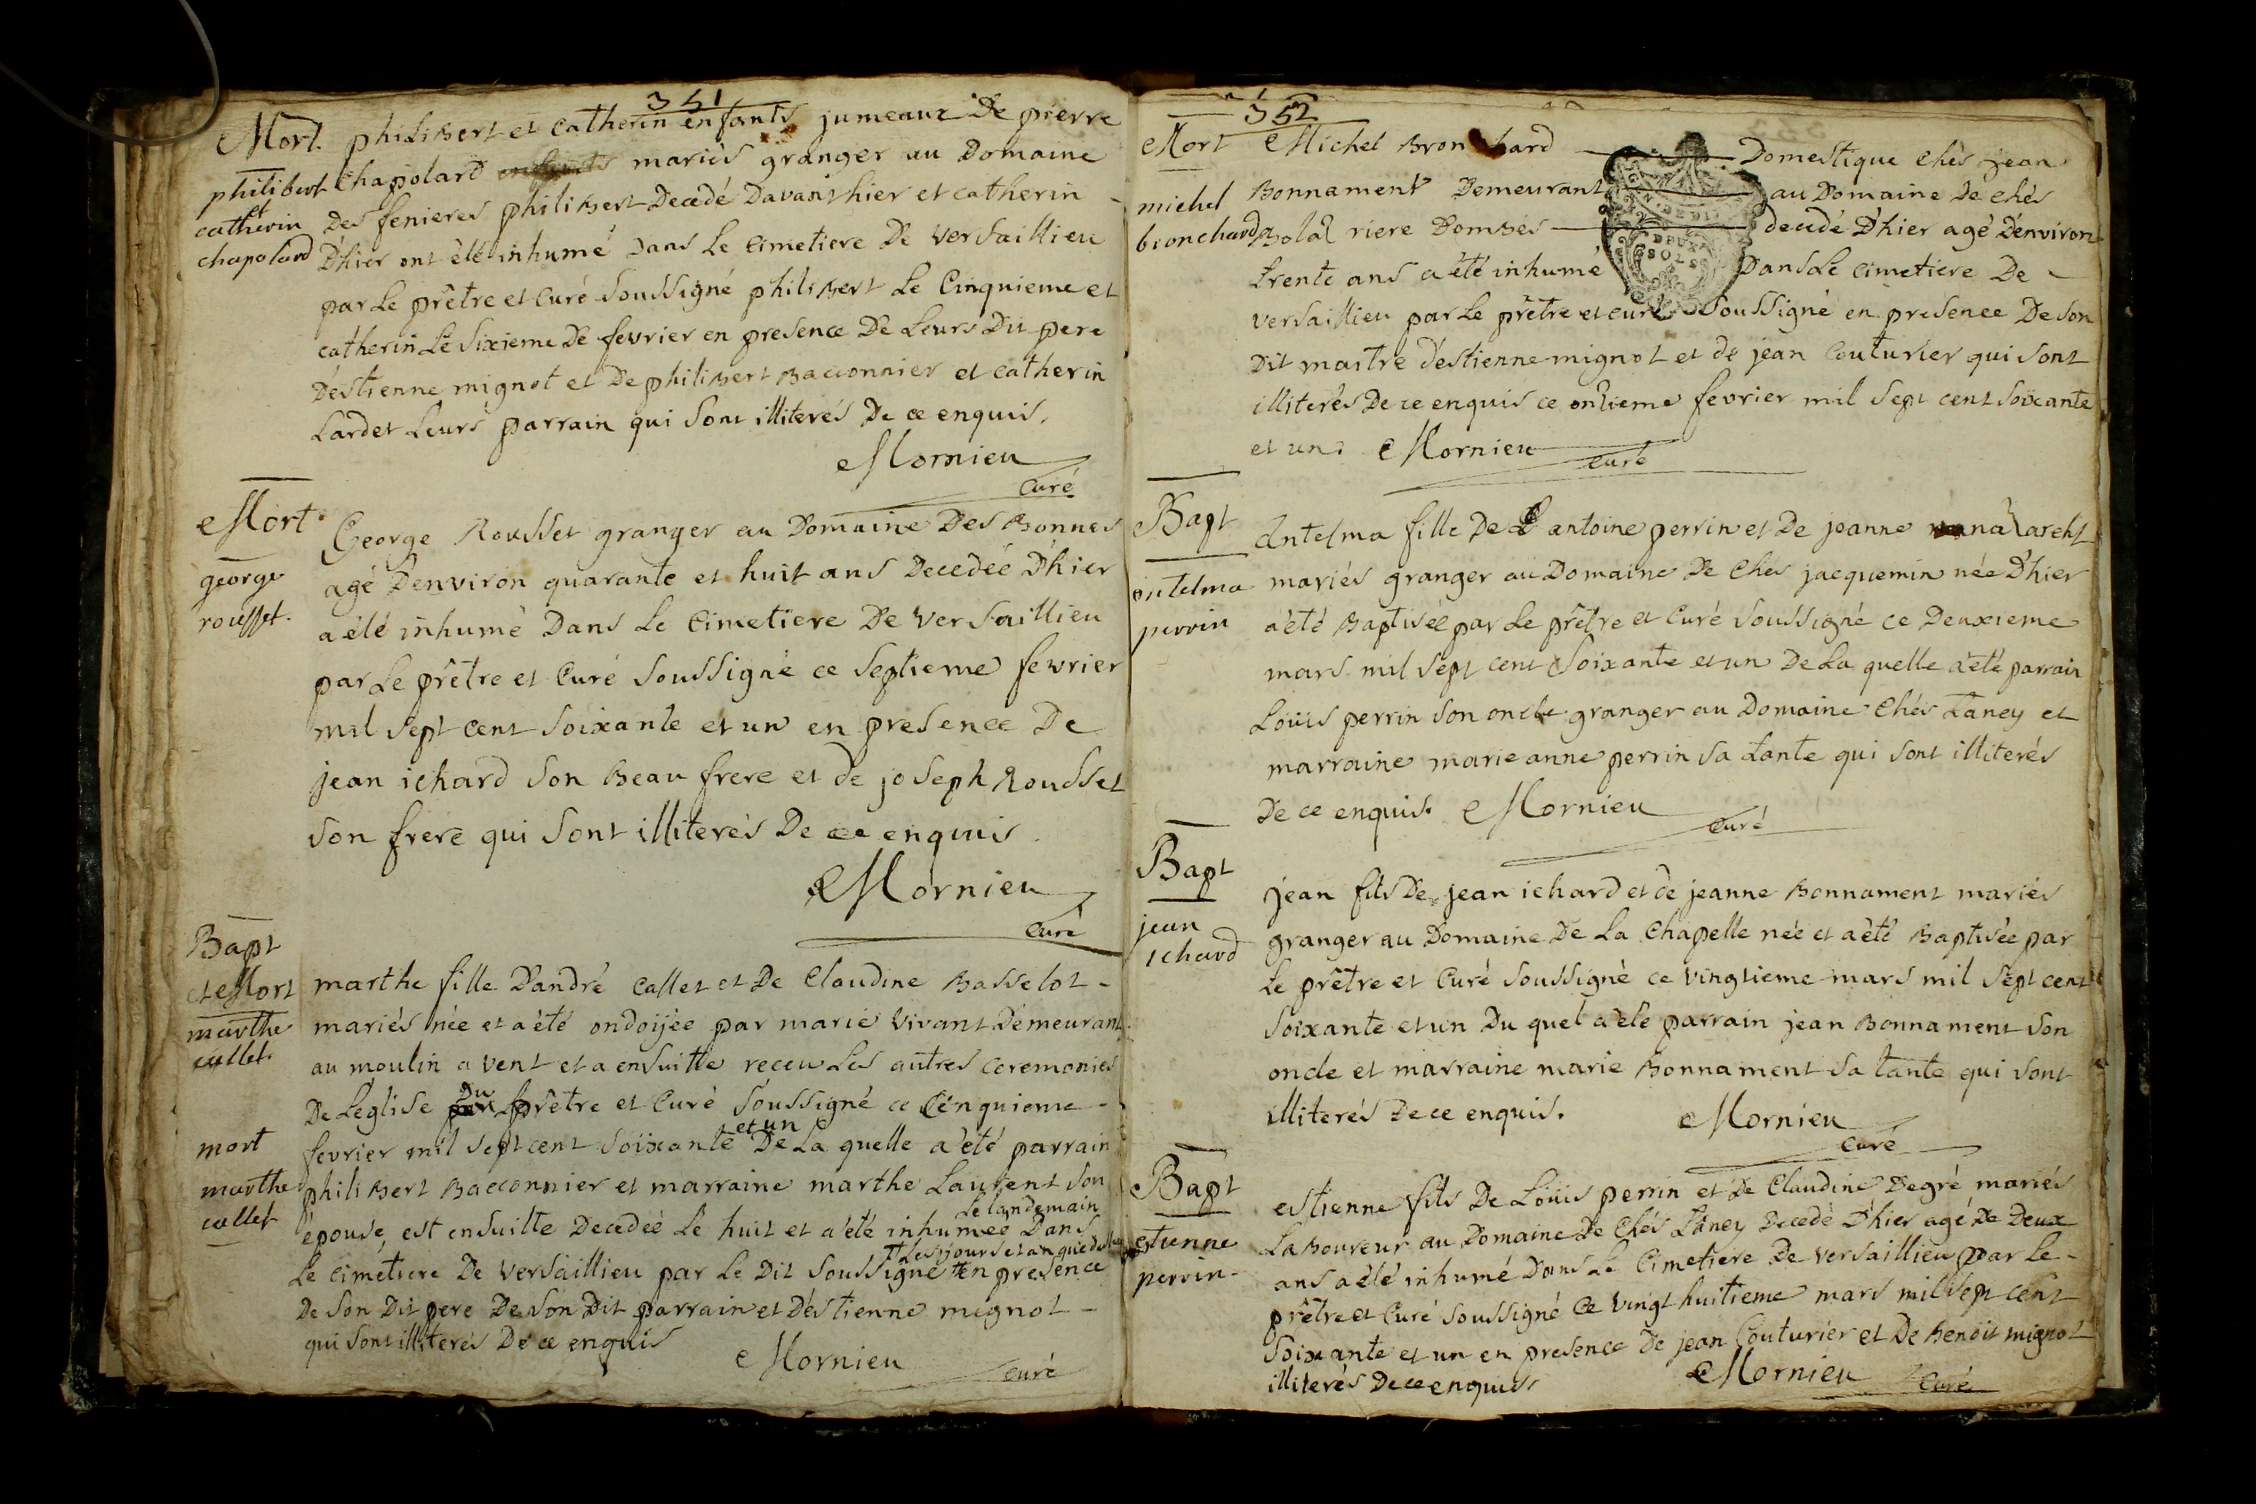 351
Mort. philibert et catherin enfants jumeaux De pierre
philibert et catherin chapolard
Chapolard mariés granger au Domaine
Des fenieres philibert Decedé Davant hier et catherin
D'hier ont été inhumé dans Le Cimetiere De Versaillieu
par Le prêtre et Curé Soussigné philibert Le Cinquieme et
catherin Le Sixieme De fevrier en presence De Leurs Dit pere
D'estienne mignot et De philibert Bacconnier et catherin
Lardet Leurs parrain qui Sont illiterés De ce enquis.
Mornieu
Curé
Mort
george rousset.
George Rousset granger au Domaine Des Bonnes
agé D'environ quarante et huit ans Decedée D'hier
a été inhumé Dans Le Cimetiere De Versaillieu
par Le prêtre et Curé Soussigné ce Septieme fevrier
mil Sept cent Soixante et un en presence De
jean ichard Son Beau frere et de joseph Rousset
Son frere qui Sont illiterés De ce enquis.
Mornieu
Curé
Bapt et Mort
marthe callet.
marthe fille D'andré Callet et De Claudine Basselot -
mariés née et a été ondoijée par marie Vivant Demeurant
au moulin a vent et a ensuitte receu Les autres Ceremonies
De L'eglise Du prêtre et Curé Soussigné ce Cinquieme -
fevrier mil Sept cent Soixante et un De La quelle a été parrain
mort
marthe callet
philibert Bacconnier et marraine marthe Laurent Son
épouse, est ensuitte Decedée Le huit et a été inhumée Le landemain Dans
Le Cimetiere De Versaillieu par Le Dit Soussigné en presence
De Son Dit pere De Son Dit parrain et D'estienne mignot -
qui Sont illiterés De ce enquis
Mornieu
Curé
352
Mort Michel Bronchard Domestique Chés jean
michel bronchard
Bonnament Demeurant au Domaine De Chés
riere Dombes decédé D'hier agé D'environ
trente ans a été inhumé Dans Le Cimetiere De -
Versaillieu par Le prêtre et curé Soussigné en presence De Son
Dit maitre d'estienne mignot et de jean Couturier qui Sont
illiterés De ce enquis ce onzieme fevrier mil Sept cent Soixante
et un. Mornieu
Curé
Bapt
antelma perrin
Antelma fille De antoine perrin et De jeanne
mariés granger au Domaine De Ches jacquemin née D'hier
a été Baptisée par Le prêtre et Curé Soussigné ce Deuxieme
mars mil Sept cent Soixante et un De La quelle a été parrain
Loüis perrin Son oncle granger au Domaine Chés Taney et
marraine marie anne perrin Sa tante qui Sont illiterés
De ce enquis. Mornieu
Curé
Bapt
jean ichard
jean fils De jean ichard et de jeanne Bonnament mariés
granger au Domaine De La Chapelle née et a été Baptisée par
Le prêtre et Curé Soussigné ce Vingtieme mars mil Sept cent
Soixante et un Du quel a été parrain jean Bonnament Son
oncle et marraine marie Bonnament Sa tante qui Sont
illiterés De ce enquis.
Mornieu
Curé
Bapt
estienne perrin.
estienne fils De Loüis perrin et De Claudine Degré mariés
Laboureur au Domaine De Chés Taney Decedé D'hier agé De Deux
ans a été inhumé Dans Le Cimetiere De Versaillieu par Le -
prêtre et Curé Soussigné Ce Vingt huitieme mars mil Sept Cent
Soixante et un en presence De jean Couturier et De Benoit mignot
illiterés De ce enquis
Mornieu
Curé